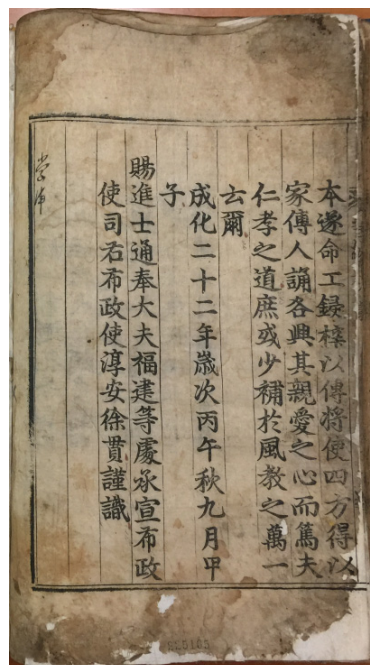 本遂命工鋟梓以傳將使四方得以
家傳人誦各興其親愛之心而篤夫
仁孝之道庶或少補於風教之萬一
云爾
成化二十二年歲次丙午秋九月甲
子
賜進士通奉大夫福建等處承宣布政
使司右布政使淳安徐貫謹識